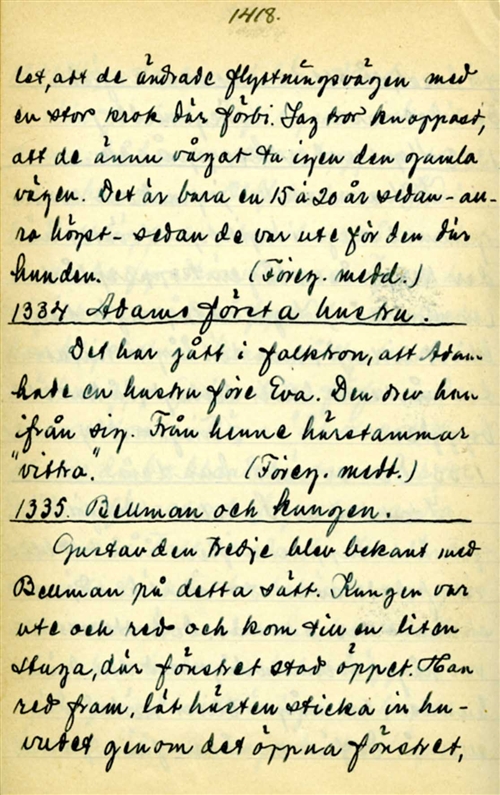 1418.
let, att de ändrade flyttningsvägen med
en stor krok där förbi. Jag tror knappast,
att de ännu vågat ta igen den gamla
vägen. Det är bara en 15 à 20 år sedan-
ra högst - sedan de var ute för den där
hunden. (Föreg. medd.)
1334 Adams första hustru.
Det har gått i folktron, att Adam
hade en hustru före Eva. Den drev han
ifrån sig. Från henne härstammar
"vittra". (Föreg. medd.)
1335. Bellman och kungen.
Gustav den tredje blev bekant med
Bellman på detta sätt. Kungen var
ute och red och kom till en liten
stuga, där fönstret stod öppet. Han
red fram, lät hästen sticka in hu-
vudet genom det öppna fönstret,